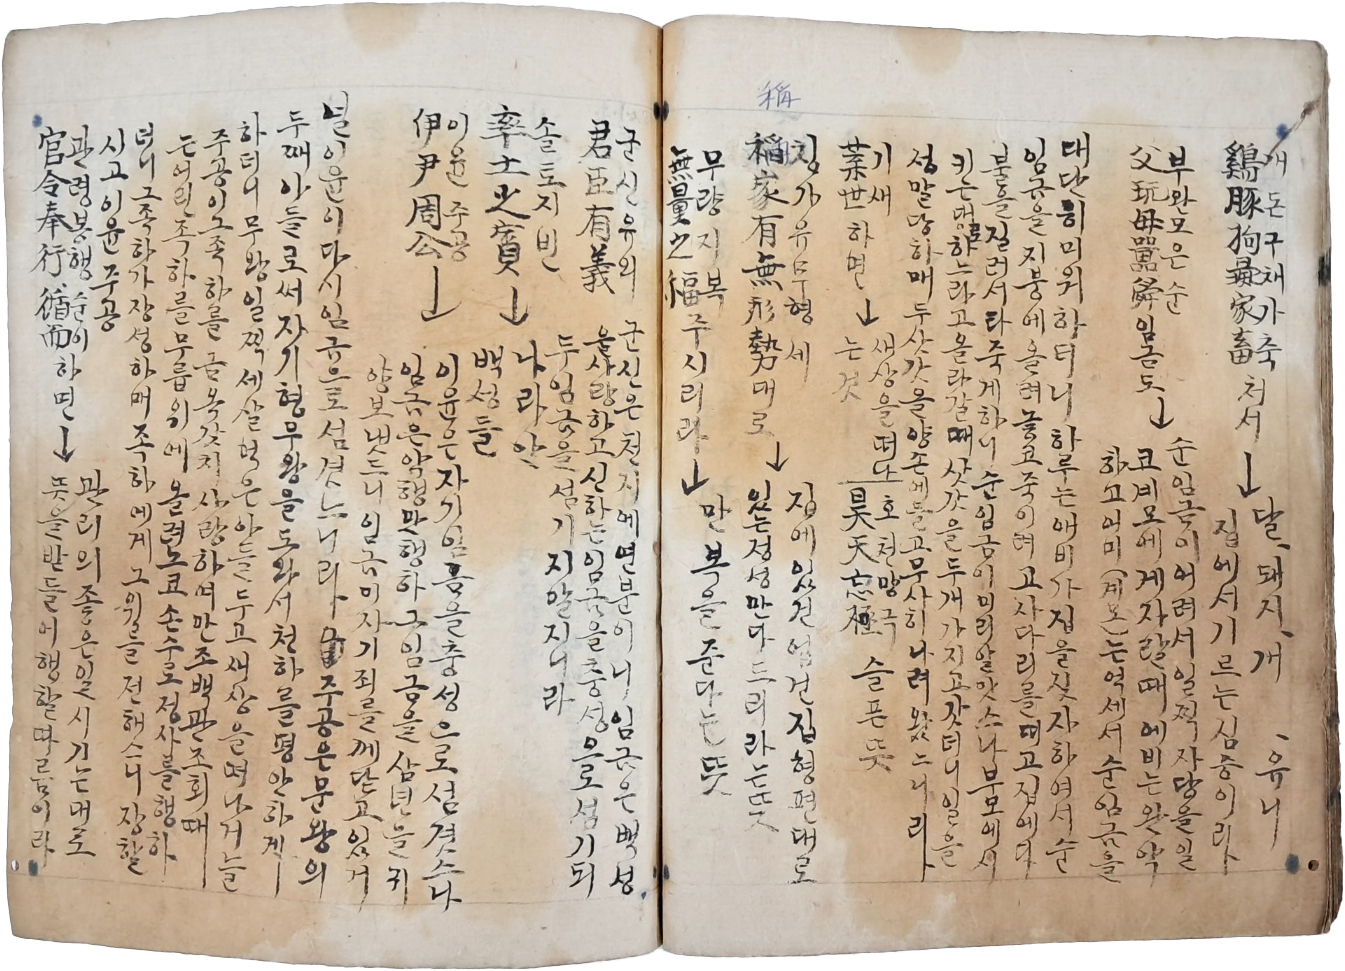 개돈구채가축
鷄豚拘彘家畜 처서 ↓ 달, 돼지, 개, 유니
집에서 기르는 짐승이라
부완모은순
父玩母嚚舜 임금도 ↓ 순임금이 어려서 일찍자당을 일
코 계모에게 자랄때 에비는 완악
하고 어미(계모)는 억세서 순임금을
대단히 미워하더니 하루는 애비가 집을 짓자하여서 순
임금을 지붕에 올려놓코 죽이려고 사다리를 떼고 집에다
불을 질러서 타 죽게하니 순임금이 미리 알앗스나 부모에서
키는 명하는라고 올라갈때 삿갓을 두개 가지고 갓더니 일을
성말당하매 두 삿갓을 양손에 들고 무사히 나려왔느니라
기새
棄世 하면 ↓ 새상을 떠나 호천망극
는것 昊天忘極 슬픈 뜻
칭가유무형세
稱
稻家有無形勢 대로 ↓ 집에 있건 업건 집형편대로
있는 정성만다 드리라는 뜻
무량지복
無量之福 주시리라 ↓ 만복을 준다는 뜻
군신유의 군신은 천지에 명분이니 임금은 백성
君臣有義 을 사랑하고 신하는 임금을 충성으로 섬기되
두임금을 섬기지 말지니라
솔토지빈 나라안
率土之賓 ↓ 백성들
이윤 주공 이윤은 자기임금을 충성으로 섬겻스나
伊尹周公 ↓ 임금은 악행만 행하 그 임금을 삼년을 귀
양보냇드니 임금미 자기죄를 께닫고 있거
널 이윤이 다시 임금으로 섬겻느니라 주공은 문왕의
두째아들로써 자기형 무왕을 도와서 천하를 평안하게
하더니 무왕 일찍 세살먹은 아들 두고 새상을 떠나거늘
주공이 그족하를 금옥갓치 사랑하여 만조백관 조회때
는 어린족하를 무릅위에 올려노코 손수로 정사를 행하
더니 그족하가 장성하매 족하에게 그위를 전해스니 장할
시고 이윤 주공
관령봉행 순이 관리의 좋은일 시기는대로
官令奉行 猶而 하면 ↓ 뜻을 받들어 행할따름이라